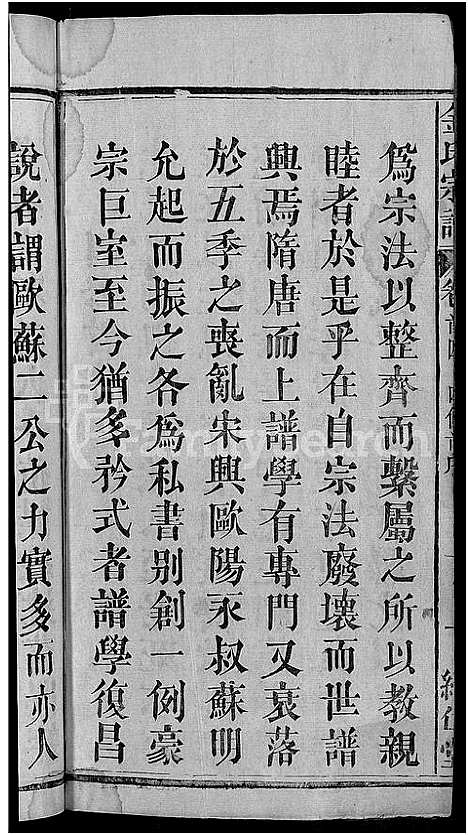 金氏宗譜
爲宗法以整齊而繫屬之所以教親
睦者於是乎在自宗法廢壞而世譜
興焉隋唐而上譜學有專門又衰落
於五季之喪亂宋興歐陽永叔蘇明
允起而振之各爲私書别創一例豪
宗巨室至今猶多矜式者譜學復昌
說者謂歐蘇二公之力實多而亦人